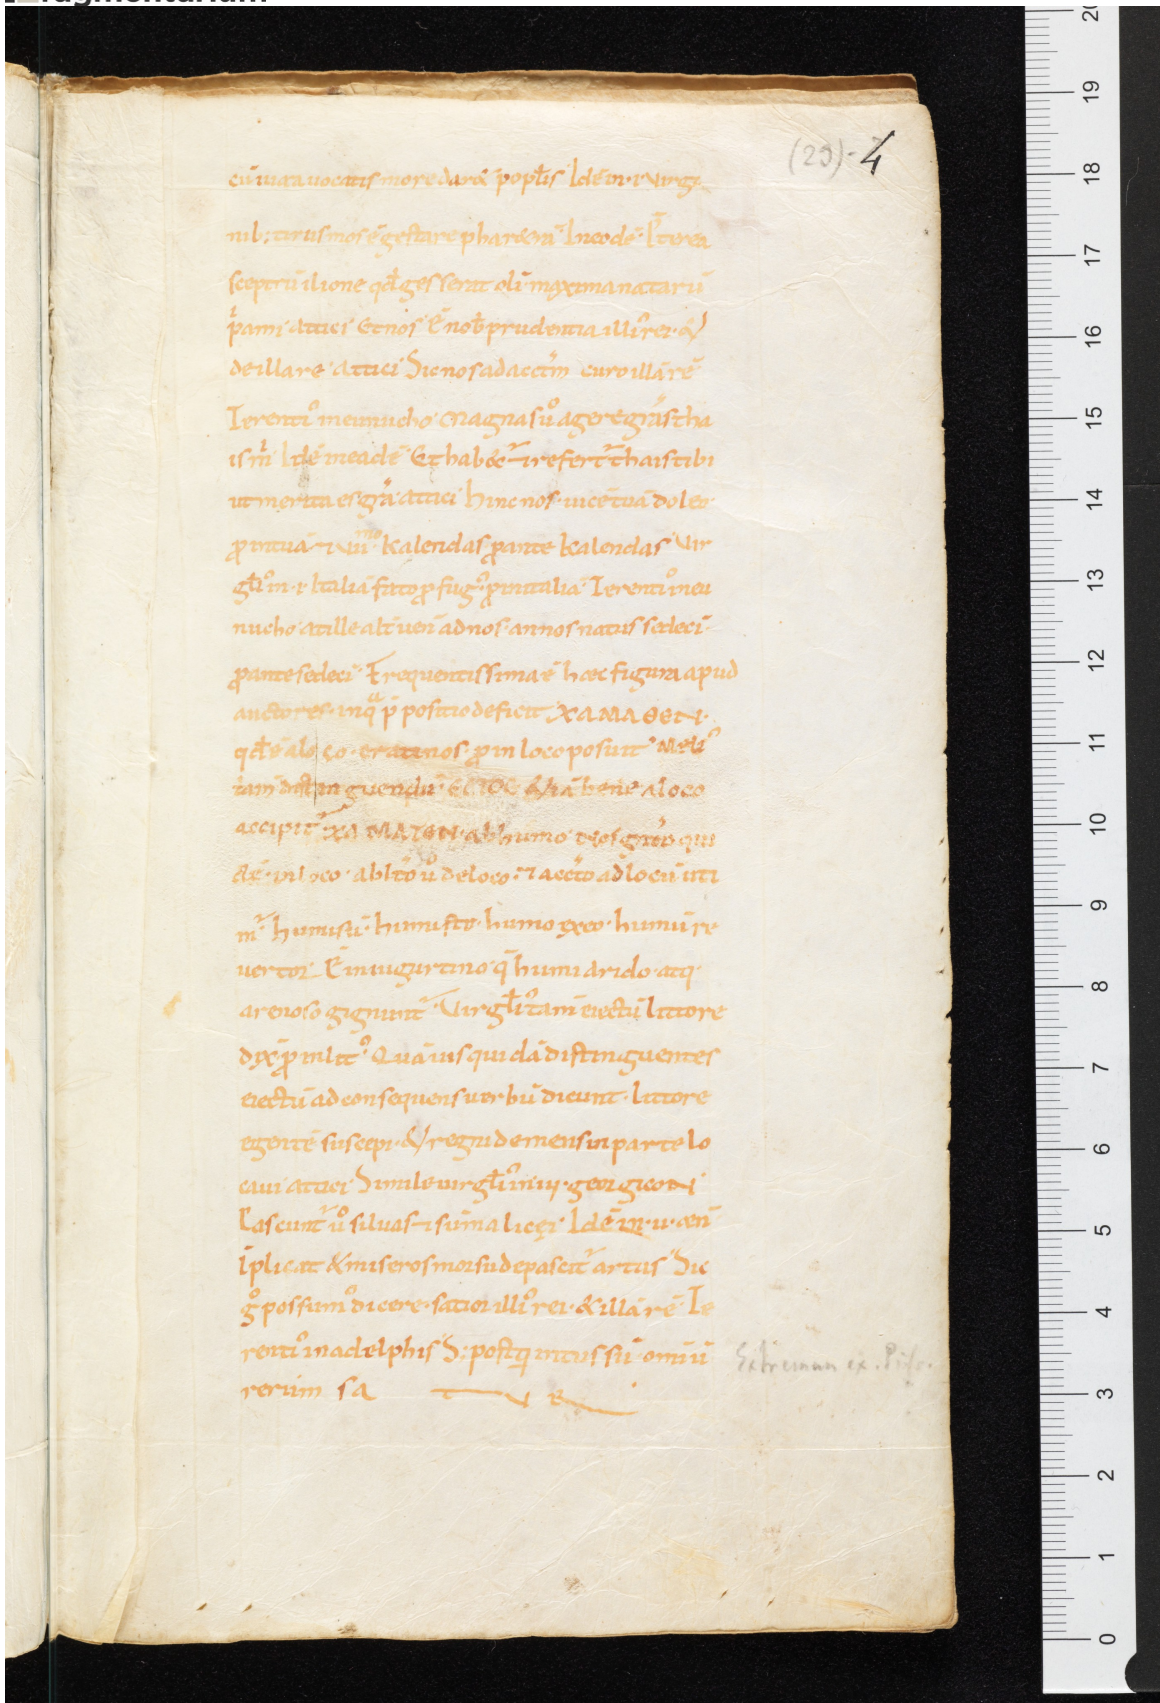 (29)-4
cū iura uocatis more dar& poplis Idē in ·i· Virgi
nib; tirus mos ē gestare phar&rā Ineodē P̄terea
sceptrū ilione qd̄ gesserat olī maxima natarū
p̄ami attici Et nos ē nob̄ prudentia illi rei &
de illa re attici Sic nos ad acctm̄ curo illā rē
Terenti in eunucho Magnas ū agere grās tha
is m̄ Idē in eadē Et hab&ur ⁊ refert̄ thais tibi
ut merita es grā attici hinc nos uicē tuā doleo
ꝓ in tuā ⁊ kalendas ꝓ ante kalendas Vir
gł in ·i· Italiā fato ꝓfug ꝓ in italiā Terenti in eu
nucho at ille alt uen̄ ad nos annos natus sedeci
ꝓ ante sedeci Frequentissima ē haec figura apud
auctores in q̄ p̄positio deficit ΧΑΜΑΘΕΝ
qd̄ ē a loco eratinos ꝓ in loco posuit Meli
tam̄ distinguendū &iā bene a loco
accipit̄ ab humo designat̄ qui
in loco ablto ū de loco ⁊ accto ad locū uti
m̄ humi sū humi sto humo exeo humū re
uertor ē in iugurtino q̄ humi arido atq
arenoso gignunt̄ Virgł tam̄ eiectū littore
dix̄ ꝓ in lit Quāuis quidā distinguentes
eiectū ad consequens uerbū dicunt littore
egentē suscepi & regni demens in parte lo
caui attici Simile uirgł in iii georgicoN
Pascunt̄ ū siluas ⁊ sūma licęi Idē in ·u· aen̄
Īplicat & miseros morsu depascit̄ artus Sic
g possum dicere satior illi rei & illā rē Te
renti in adelphis S: postq̄ intus sū omiū
rerum sa t u r
Extremum ex. Prisc.